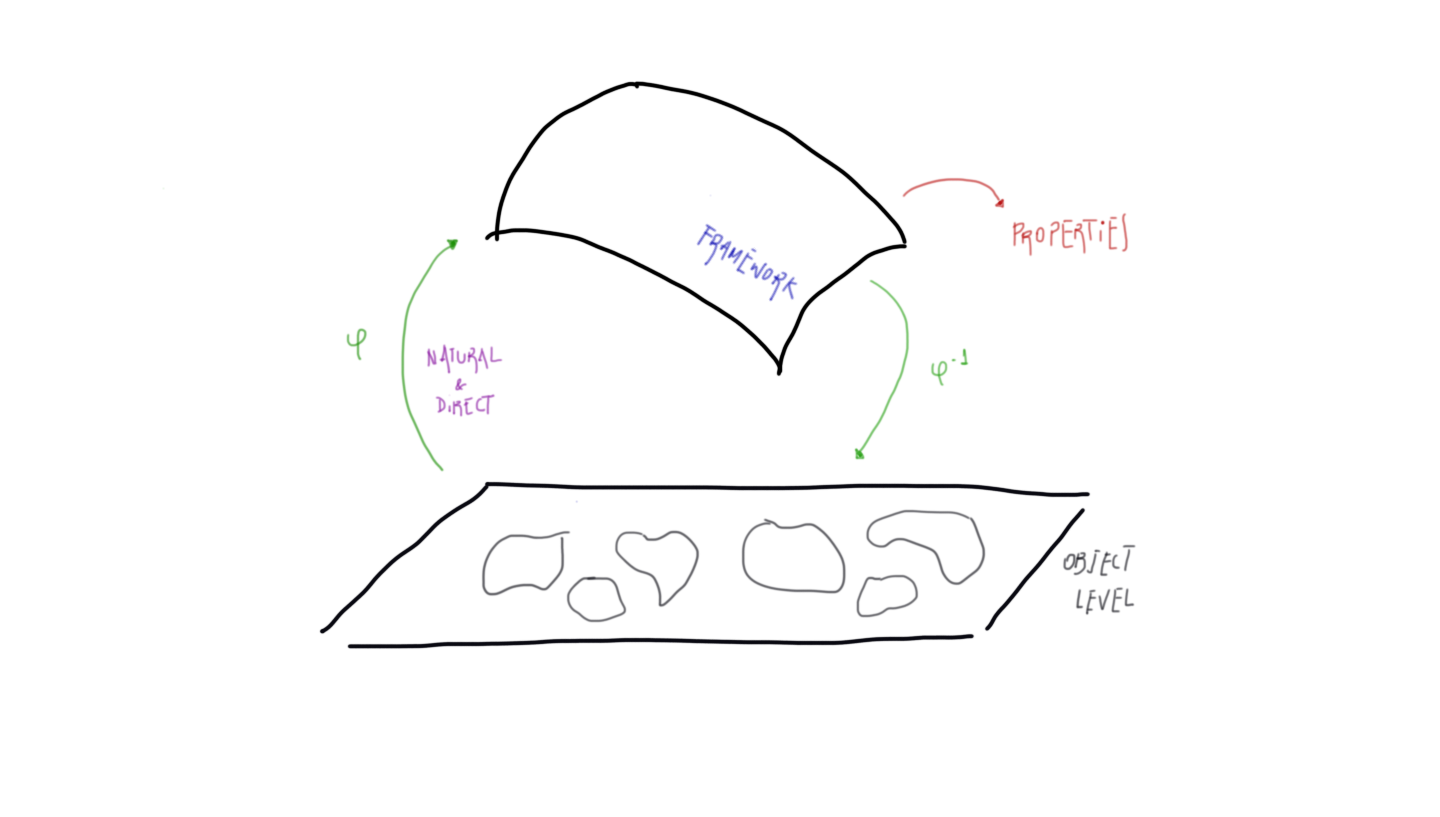 FRAMEWORK
PROPERTIES
φ
NATURAL
&
DIRECT
φ⁻¹
OBJECT
LEVEL